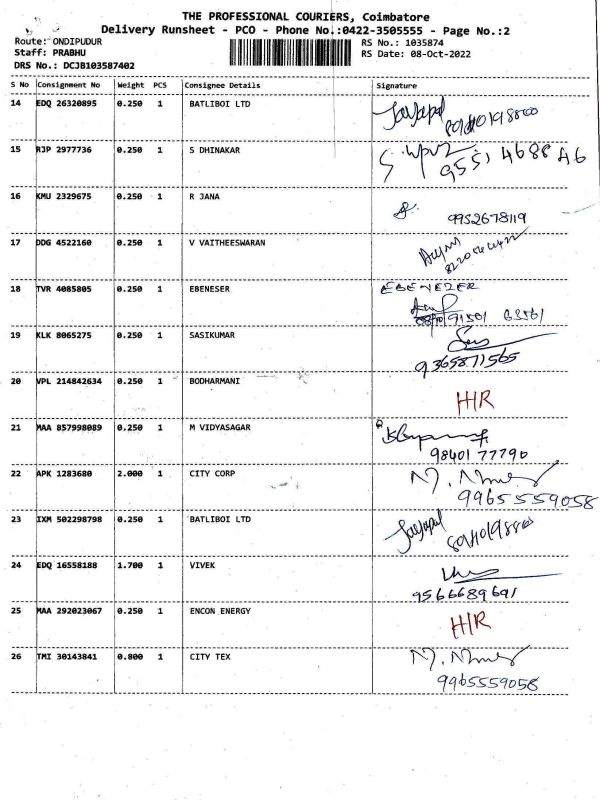 THE PROFESSIONAL COURIERS, Coimbatore
Delivery Runsheet - PCO - Phone No.:0422-3505555 - Page No.:2
Route: ONDIPUDUR
RS No.: 1035874
Staff: PRABHU
RS Date: 08-Oct-2022
DRS No.: DCJB103587402
S No Consignment No Weight PCS Consignee Details Signature
14 EDQ 26320895 0.250 1 BATLIBOI LTD Jayapal
15 RJP 2977736 0.250 1 S DHINAKAR
9551468846
16 KMU 2329675 0.250 1 R JANA
9952678119
17 DDG 4522160 0.250 1 V VAITHEESWARAN
18 TVR 4085805 0.250 1 EBENESER EBENEZER
91501 63561
19 KLK 8065275 0.250 1 SASIKUMAR
9365871565
20 VPL 214842634 0.250 1 BODHARMANI H/R
21 MAA 857998089 0.250 1 M VIDYASAGAR
98401 77790
22 APK 1283680 2.000 1 CITY CORP
9965559058
23 IXM 502298798 0.250 1 BATLIBOI LTD Jayapal
24 EDQ 16558188 1.700 1 VIVEK
9566689691
25 MAA 292023067 0.250 1 ENCON ENERGY H/R
26 TMI 30143841 0.800 1 CITY TEX
9965559058